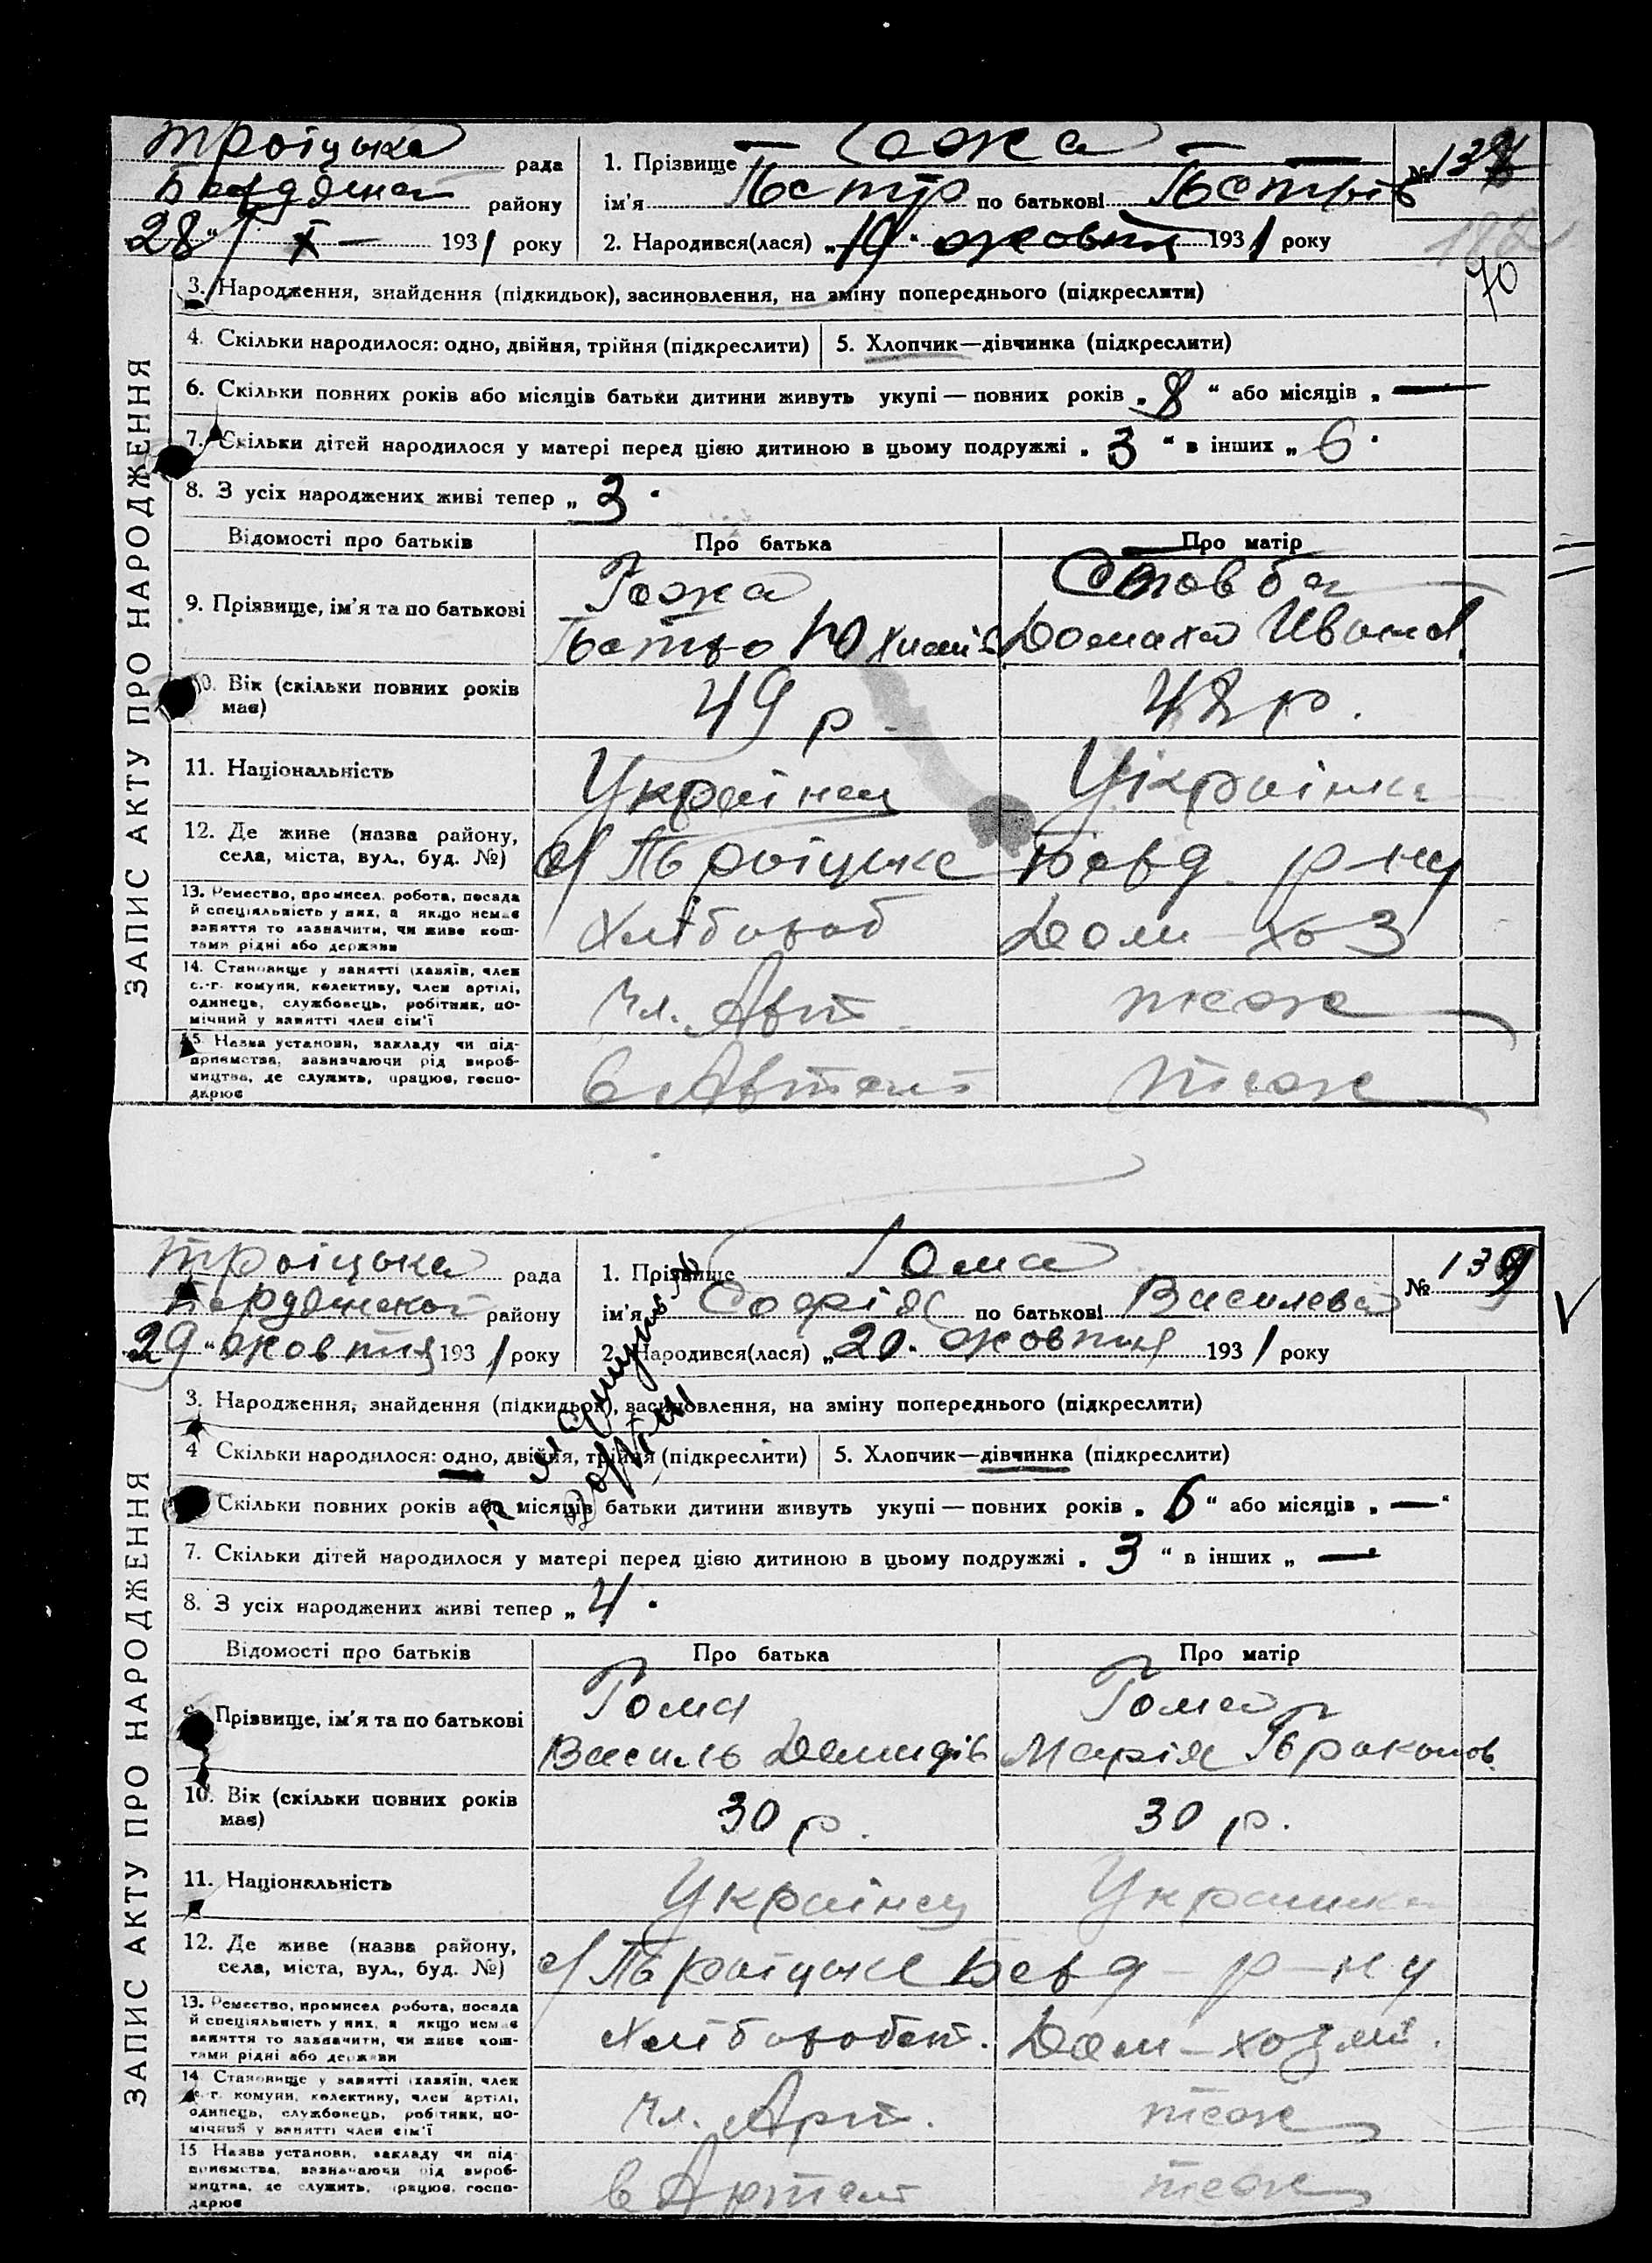 Троіцька рада
Бердянск району
28 " X — 1931 року
1. Прізвище Гожа
ім'я Петр по батькові Петрів
2. Народився(лася) „19" жовтня 1931 року
№ 138
70
ЗАПИС АКТУ ПРО НАРОДЖЕННЯ
3. Народження, знайдення (підкидьок), засиновлення, на зміну попереднього (підкреслити)
4. Скільки народилося: одно, двійня, трійня (підкреслити) 5. Хлопчик—дівчинка (підкреслити)
6. Скільки повних років або місяців батьки дитини живуть укупі — повних років „ 8 " або місяців „ —
7. Скільки дітей народилося у матері перед цією дитиною в цьому подружжі „ 3 " в інших „ 6 "
8. З усіх народжених живі тепер „ 3 "
Відомості про батьків Про батька Про матір
9. Прізвище, ім'я та по батькові
Гожа
Петро Юхимів
Стовба
Домаха Иванов
10. Вік (скільки повних років
має)
49 р.
42 р.
11. Національність Украінец Украінка
12. Де живе (назва району,
села, міста, вул., буд. №)
с/ Троіцьке Берд р-ну
13. Ремество, промисел, робота, посада
й спеціяльність у них, а якщо немає
заняття то зазначити, чи живе кош-
тами рідні або держави
Хлібороб
Дом хоз
14. Становище у занятті (хазяїн, член
с.-г. комуни, колективу, член артілі,
одинець, службовець, робітник, по-
мічний у занятті член сім'ї
чл. Арт
теж
15. Назва установи, закладу чи під-
приємства, зазначаючи рід вироб-
ництва, де служить, працює, госпо-
дарює
в Артелі
теж
Троіцька рада
Бердянской району
29 " жовтня 1931 року
1. Прізвище Гома
ім'я Софія по батькові Василева
2. Народився(лася) „20" жовтня 1931 року
№ 139
ЗАПИС АКТУ ПРО НАРОДЖЕННЯ
3. Народження, знайдення (підкидьок), засиновлення, на зміну попереднього (підкреслити)
4 Скільки народилося: одно, двійня, трійня (підкреслити) 5. Хлопчик—дівчинка (підкреслити)
Скільки повних років або місяців батьки дитини живуть укупі — повних років „ 6 " або місяців „ — "
7. Скільки дітей народилося у матері перед цією дитиною в цьому подружжі „ 3 " в інших „ —
8. З усіх народжених живі тепер „ 4 "
Відомості про батьків Про батька Про матір
9. Прізвище, ім'я та по батькові
Гома
Василь Демидів
Гома
Марія Проконов
10. Вік (скільки повних років
має)
30 р.
30 р.
11. Національність Украінец Украинка
12. Де живе (назва району,
села, міста, вул., буд. №)
с/ Троіцьке Берд р-ну
13. Ремество, промисел робота, посада
й спеціяльність у них, а якщо немає
заняття то зазначити, чи живе кош-
тами рідні або держави
Хлібороб
Дом-хозяй.
14 Становище у занятті (хазяїн, член
с.-г. комуни, колективу, член артілі,
одинець, службовець, робітник, по-
мічний у занятті член сім'ї
чл. Арт.
теж
15 Назва установи, закладу чи під-
приємства, зазначаючи рід вироб-
ництва, де служить, працює, госпо-
дарює
в Артелі
теж